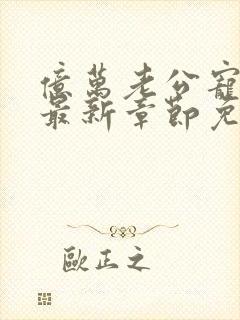 億萬老公寵
最新章節免
歐正之